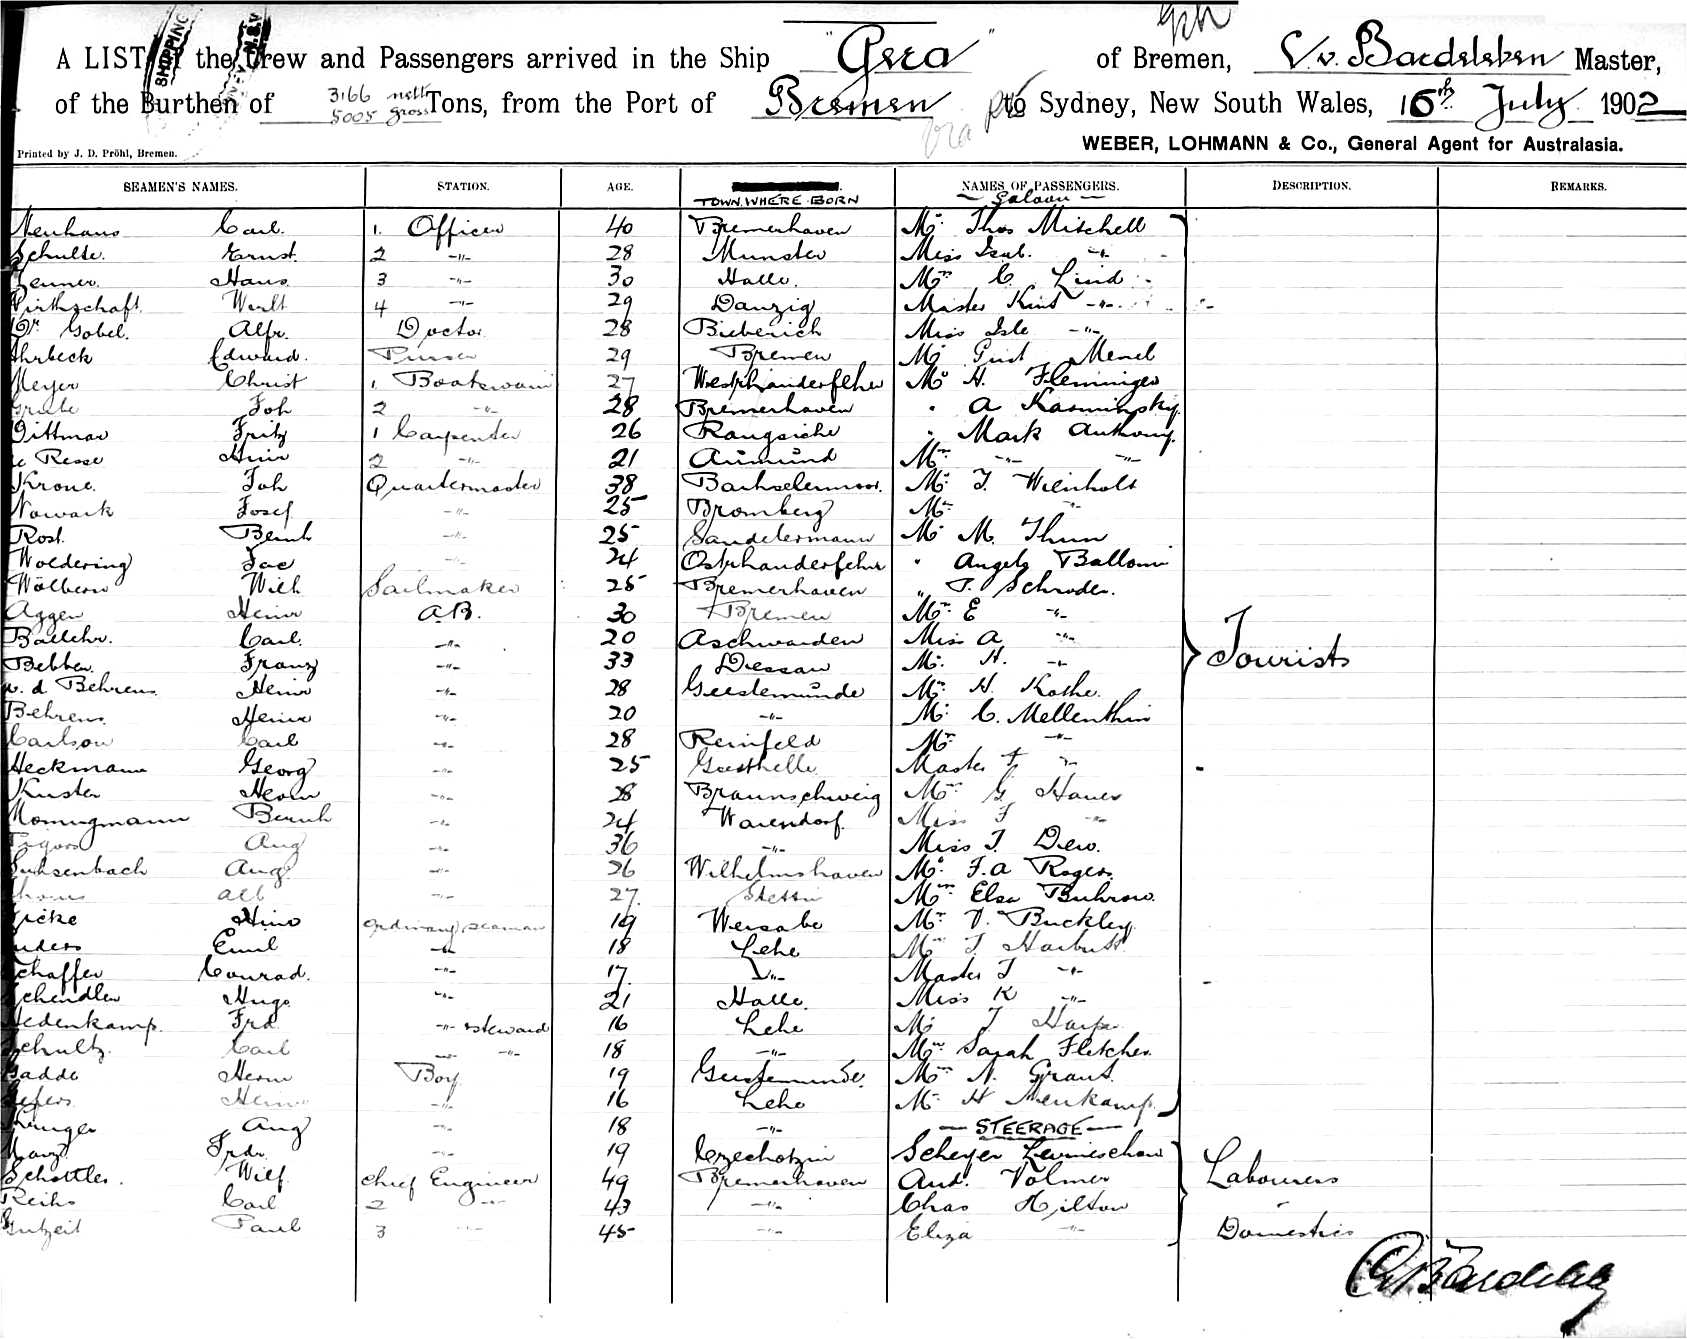 A LIST of the Crew and Passengers arrived in the Ship "Gera" of Bremen, V. v. Bardeleben Master,
of the Burthen of 3166 nett 5005 gross Tons, from the Port of Bremen to Sydney, New South Wales, 16th July 1902
WEBER, LOHMANN & Co., General Agent for Australasia.
Printed by J. D. Pröhl, Bremen.
SEAMEN'S NAMES. STATION. AGE. TOWN WHERE BORN NAMES OF PASSENGERS. DESCRIPTION. REMARKS.
— Saloon —
Neuhaus Carl. 1. Officer 40 Bremerhaven Mr. Thos Mitchell
Schulte. Ernst. 2 -"- 28 Munster Miss Isab. -"-
Zenner. Hans 3 -"- 30 Halle. Mrs C. Lind
Wirthschaft. 4 -"- 29 Danzig Master Kind -"-
Dr. Gobel. Alfr. Doctor 28 Bieberich Miss Isle -"-
Ahrbeck Edward. Purser 29 Bremen Mr
Meyer Christ 1. Boatswain 27 Westrhauderfehn Mr H. Fleminger
Grube Joh 2 -"- 28 Bremerhaven " A Kasminsky.
Dittmar Fritz 1 Carpenter 26 " Mark Anthony.
Hinr 2 -"- 21 Aumund Mrs -"- -"-
Krone. Joh Quartermaster 38 Mr. J. Wienholt
Nowack Josef -"- 25 Bromberg Mrs -"-
Rost. Bernh -"- 25 Sandelermann Mr M. Thun
Woldering Jac -"- 24 Ostrhauderfehn " Angelo Balloni
Wölbern Wilh Sailmaker 25 Bremerhaven " J. Schroder.
Aggen Heinr A.B. 30 Bremen Mrs E -"-
Carl. -"- 20 Aschwarden Miss A -"-
Bebber Franz -"- 33 Dessau Mr. H. -"- Tourists
v. d Behrens Heinr -"- 28 Geestemünde Mr. H. Kothe.
Behrens Heinr -"- 20 -"- Mr. C. Mellenthin
Carlson Carl -"- 28 Reinfeld Mrs -"-
Heckmann Georg -"- 25 Geesthelle Master -"-
Kuster Herm -"- 28 Braunschweig Mrs G Hauer
Bernh -"- 24 Warendorf. Miss F -"-
Aug -"- 36 -"- Miss J. Dew.
Suhsenbach Aug -"- 26 Wilhelmshaven Mr. F. A Rogers.
Thoms Alb -"- 27 Stettin Mrs Elsa Buhrow.
Hinr Ordinary seaman 19 Wersabe Mr. V. Buckley.
Enders Emil -"- 18 Lehe Mrs J. Harbutt.
Schaffer Conrad. -"- 17 -"- Master J -"-
Schendler Hugo -"- 21 Halle. Miss K -"-
Hedenkamp. Frd. -"- steward 16 Lehe Mr J Harpe
Schultz. Carl -"- -"- 18 -"- Mrs Sarah Fletcher.
Gadde Herm Boy 19 Geestemunde. Mrs N. Grant.
Hefers Heinr -"- 16 Lehe Mr. H Menkamp.
Kruger Aug -"- 18 -"- — STEERAGE —
Frdr. -"- 19 Czechotzin Scheyer
Schottler. Wilh chief Engineer 49 Bremerhaven Aut. Volmer Labourers
Reihs Carl 2 -"- 43 -"- Chas Hilton
Gutzeit Paul 3 -"- 45 -"- Eliza -"- Domestics